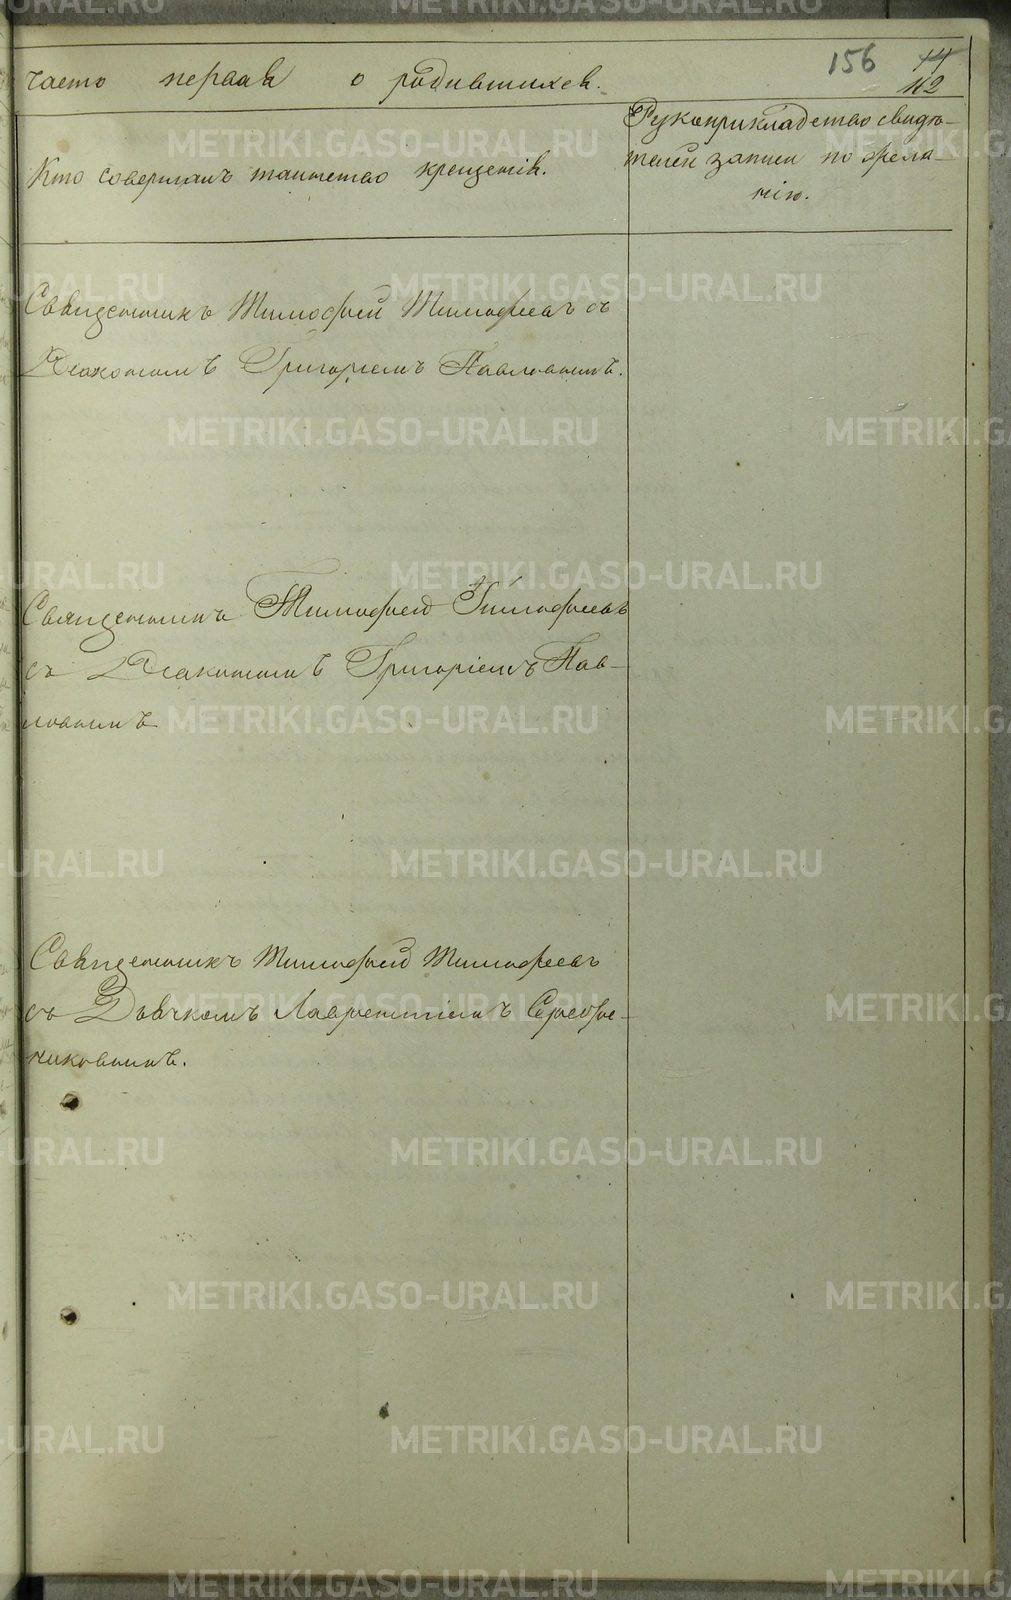 часть первая о родившихся.
156
44
112
Кто совершалъ таинство крещенія.
Рукоприкладство свидѣ-
телей записи по жела-
нію.
Священникъ Тимофей Тимофеевъ съ
Діакономъ Григоріемъ Павловымъ.
Священникъ Тимофей Тимофеевъ
съ Діакономъ Григоріемъ Пав-
ловымъ
Священникъ Тимофей Тимофеевъ
съ Дьячкомъ Лаврентіемъ Серебре-
никовымъ.
METRIKI.GASO-URAL.RU